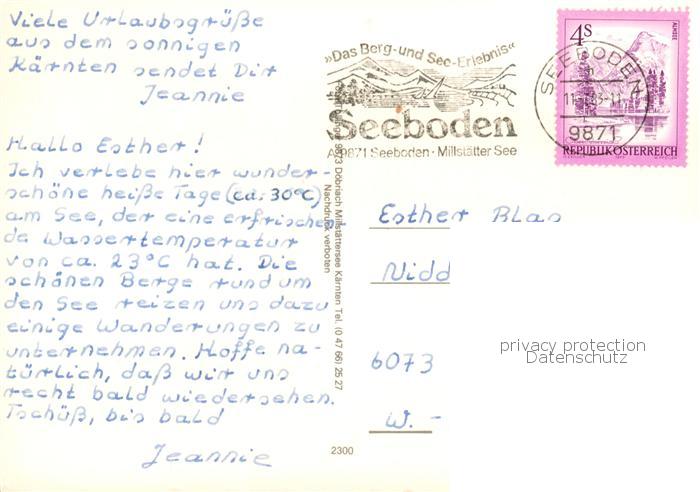 Viele Urlaubsgrüße
aus dem sonnigen
Kärnten sendet Dir
Jeannie
Hallo Esther!
Ich verlebe hier wunder-
schöne heiße Tage (ca. 30°C)
am See, der eine erfrischen
de Wassertemperatur
von ca. 23°C hat. Die
schönen Berge rund um
den See reizen uns dazu
einige Wanderungen zu
unternehmen. Hoffe na-
türlich, daß wir uns
recht bald wiedersehen.
Tschüß, bis bald
Jeannie
»Das Berg-und See-Erlebnis«
Seeboden
A-9871 Seeboden · Millstätter See
9873 Döbriach Millstättersee Kärnten Tel. (0 47 66) 25 27
Nachdruck verboten
2300
4S
ALMSEE
REPUBLIK ÖSTERREICH
SEEBODEN
9871
Esther Blas
Nidd
6073
W. -
privacy protection
Datenschutz